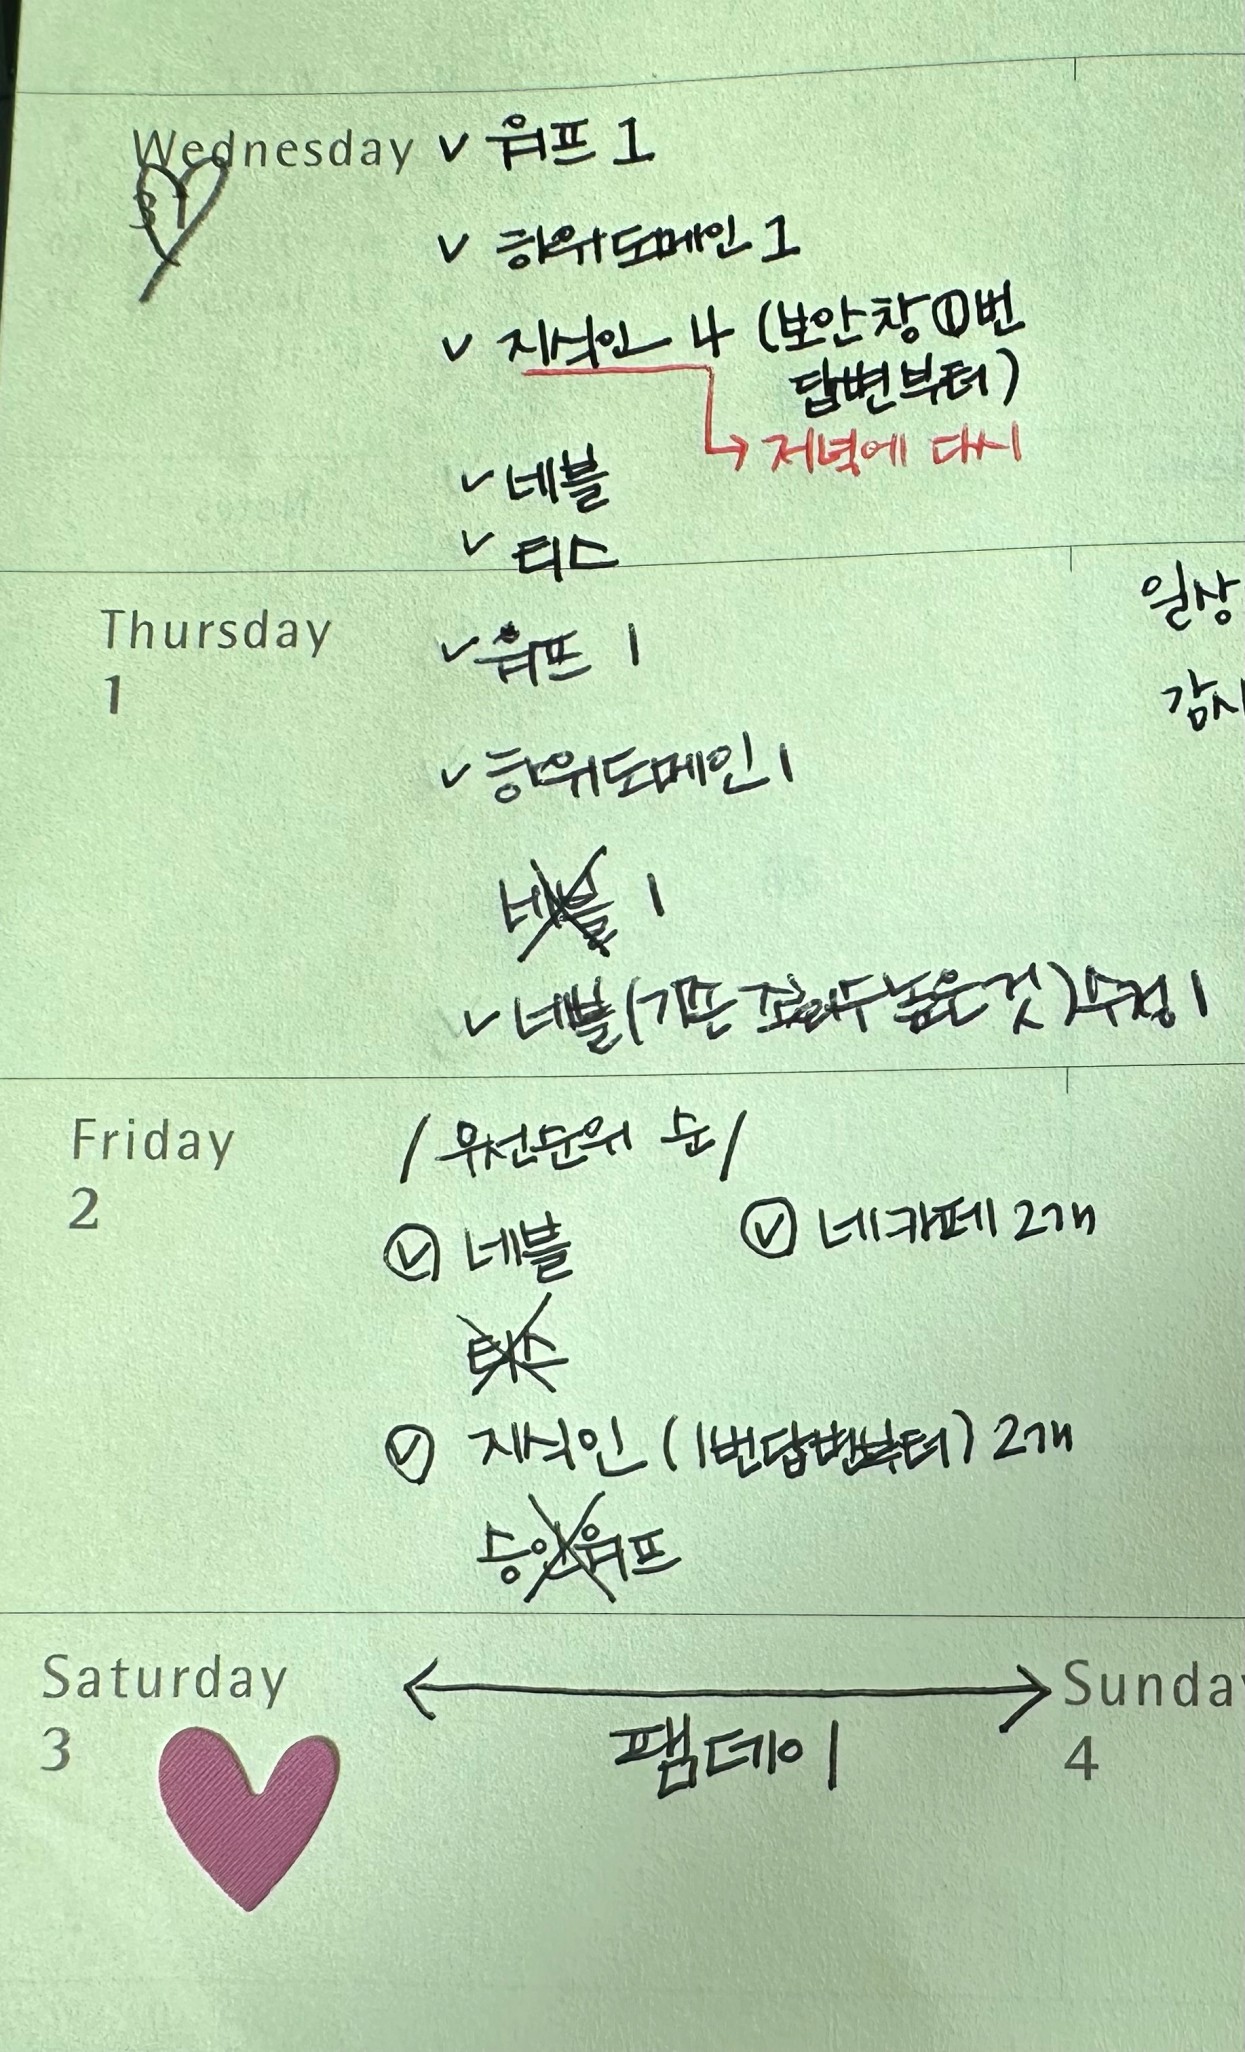 Wednesday ✓ 워프 1
31
✓ 하위도메인 1
✓ 지식인 4 (보안창 ①번
답변부터)
→ 저녁에 다시
✓ 네블
✓ 티스
Thursday
1
✓ 워프 1
일상
감사
✓ 하위도메인 1
네블 1
✓ 네블(기존 조회수 높은 것) 수정 1
Friday
2
/ 우선순위 순 /
✓ 네블
✓ 네카페 2개
티스
✓ 지식인 (1번답변부터) 2개
승인워프
Saturday
3
팸데이
Sunday
4